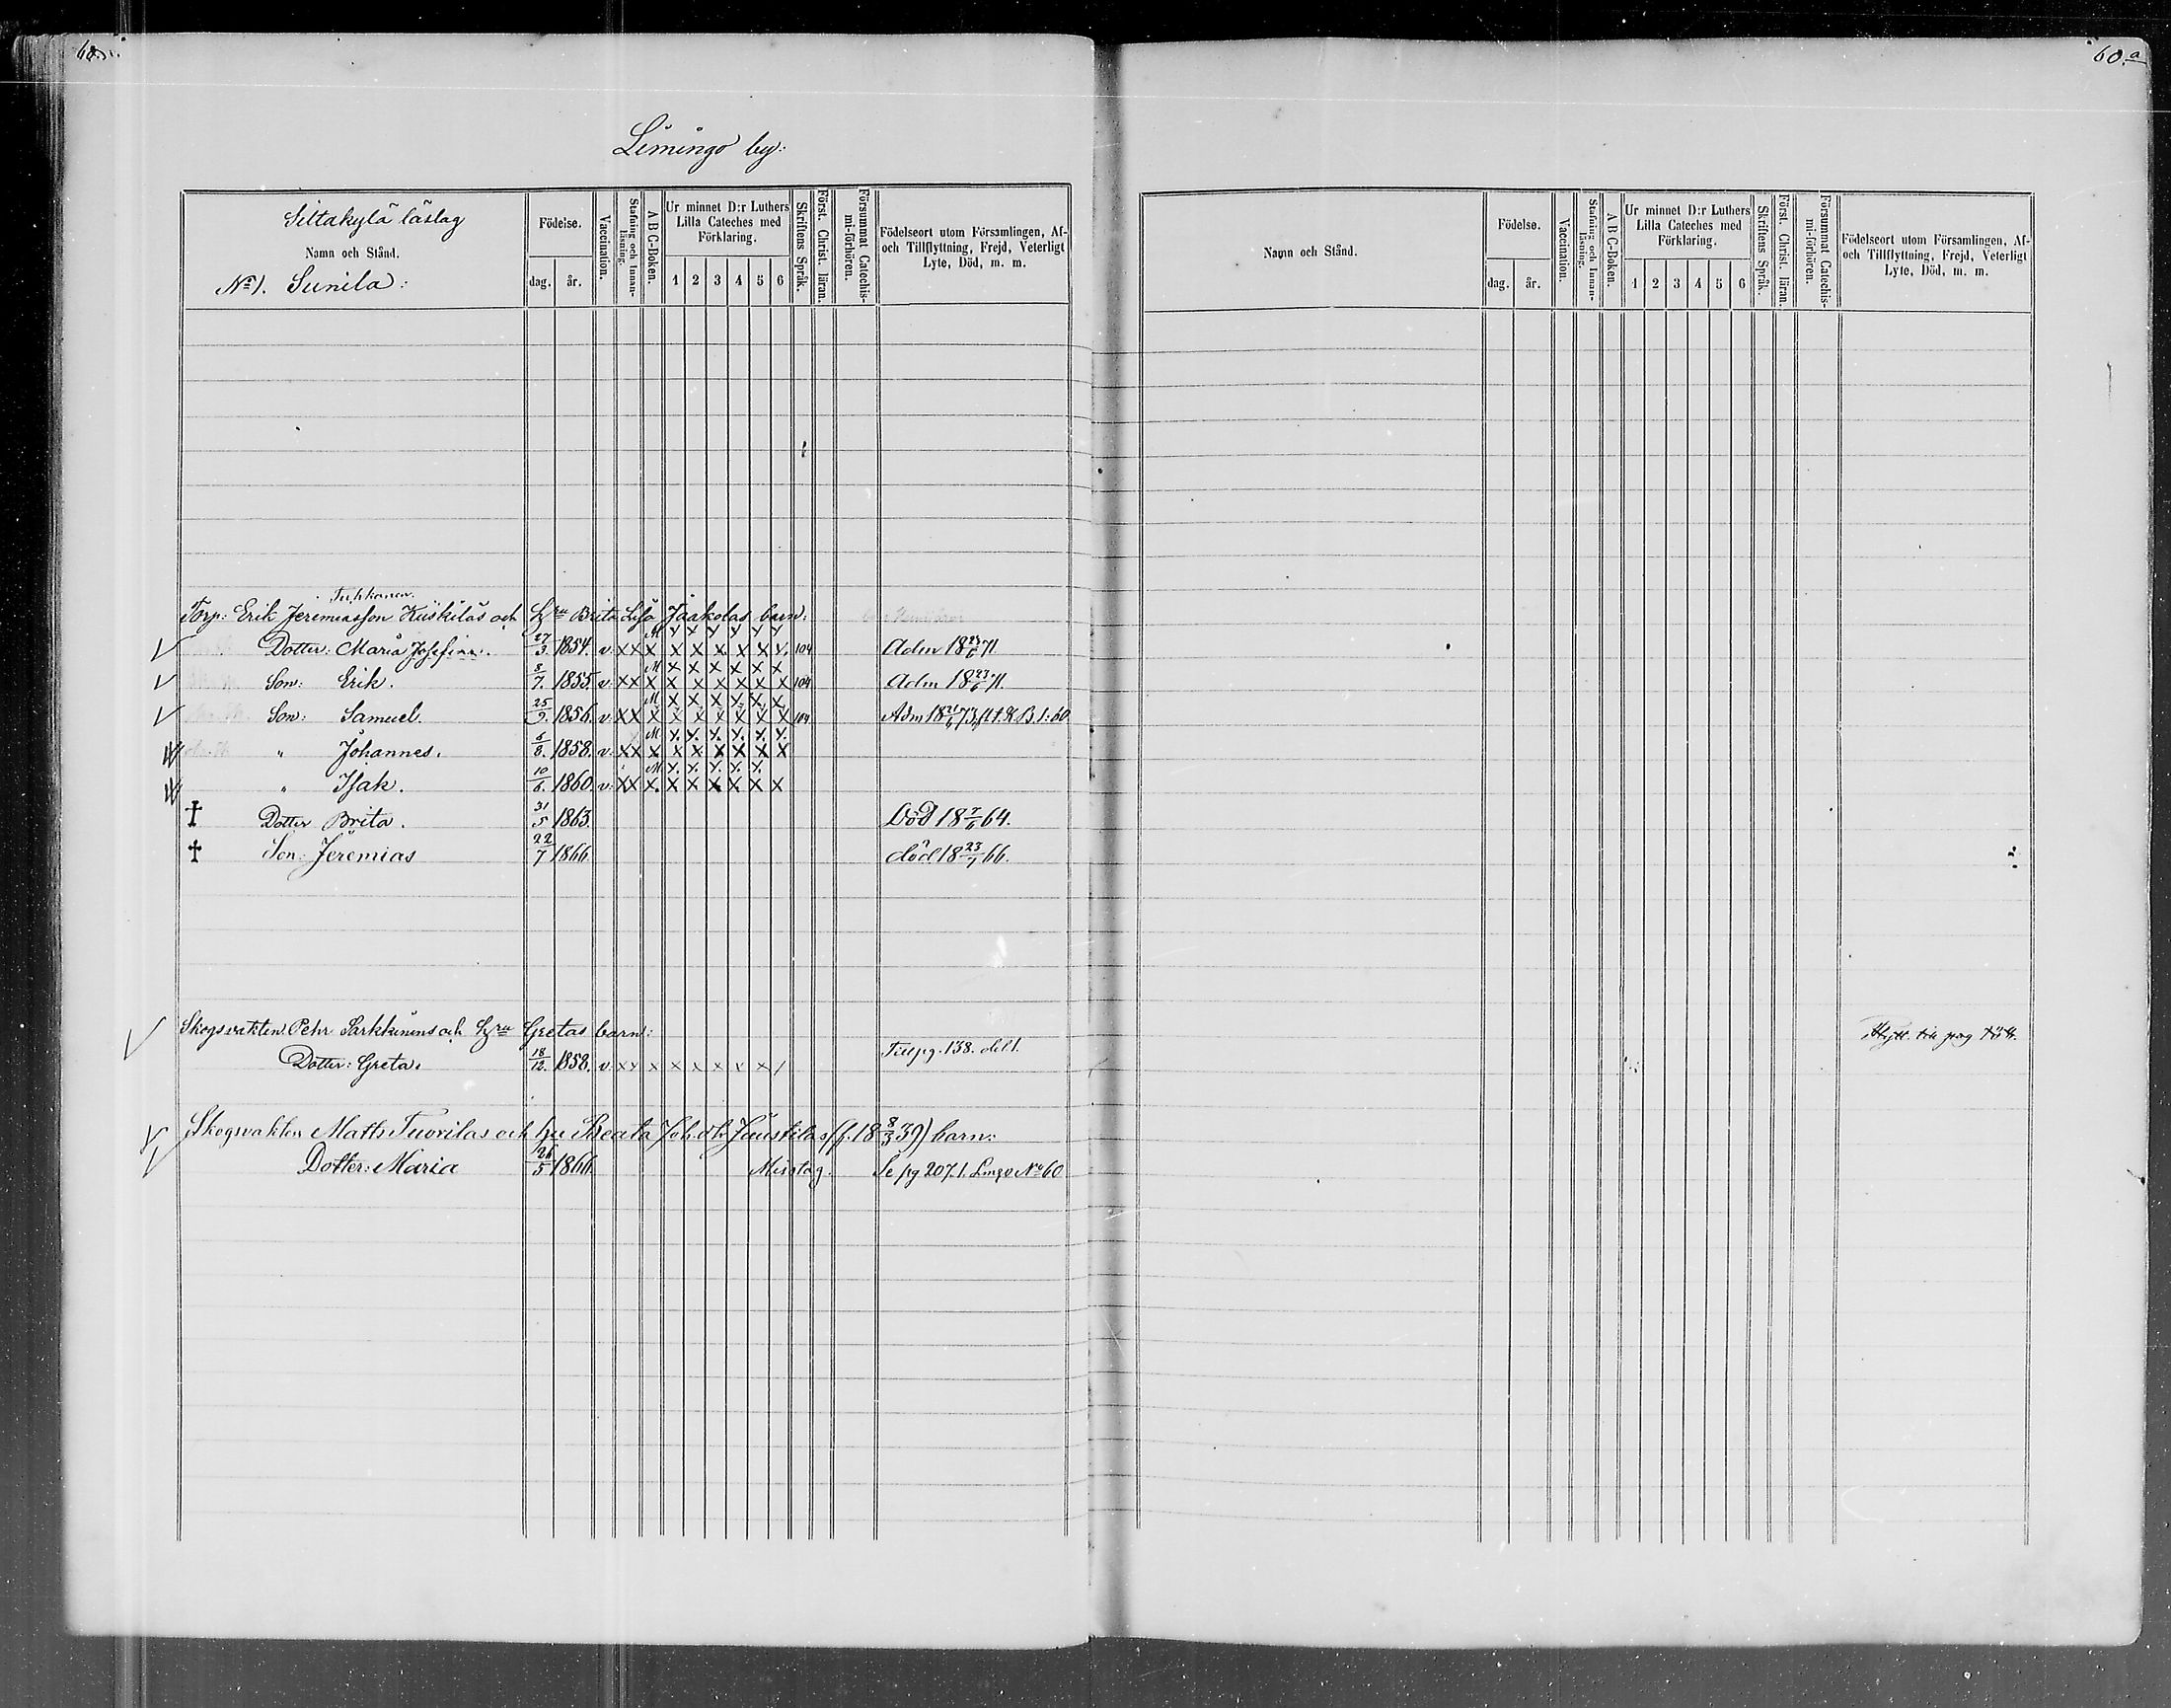 60.a
Limingo by:
Siltakylä läslag
Namn och Stånd.
No 1. Sunila:
Födelse.
dag. år.
Vaccination.
Stafning och Innan-läsning.
A B C-Boken.
Ur minnet D:r Luthers
Lilla Cateches med
Förklaring.
1 2 3 4 5 6
Skriftens Språk.
Först. Christ. läran.
Försummat Catechis-mi-förhören.
Födelseort utom Församlingen, Af-
och Tillflyttning, Frejd, Veterligt
Lyte, Död, m. m.
Torp: Erik Jeremiasson Kuskilas och Hru Brita Lisa Jaakolas barn:
M x x x x x x
Dotter: Maria Josefina. 27/3. 1854. v. x x x x x x x x x. 104 Adm 18 23/6 71.
M x x x x x x
Son: Erik. 8/7. 1855. v. x x x x x x x x x 104 Adm 18 23/6 71.
M x x x x x x
Son: Samuel. 25/9. 1856. v. x x x x x x x x x 104 Adm 18 21/6 73
M x. x. x. x. x. x.
" Johannes. 6/8. 1858. v. x x x. x x x x x x
M x. x. x. x. x.
" Isak. 10/6. 1860. v. x x x. x x x x. x x
† Dotter Brita. 31/5 1863. Död 18 7/6 64.
† Son: Jeremias 22/7 1866. död 18 23/7 66.
Skogsvakten Pehr Sarkkinens och Hru Gretas barn:
Dotter: Greta. 18/12. 1858. v x x x x x x x x / Till pg. 138. del 1.
Skogvakten Matts Tuorilas och hu Beata Joh.dtr (f. 18 8/3 39) barn:
Dotter: Maria 26/5 1866. Misstag. Se pg 207. 1. Lmgo No 60
60.a
Namn och Stånd.
Födelse.
dag. år.
Vaccination.
Stafning och Innan-läsning.
A B C-Boken.
Ur minnet D:r Luthers
Lilla Cateches med
Förklaring.
1 2 3 4 5 6
Skriftens Språk.
Först. Christ. läran.
Försummat Catechis-mi-förhören.
Födelseort utom Församlingen, Af-
och Tillflyttning, Frejd, Veterligt
Lyte, Död, m. m.